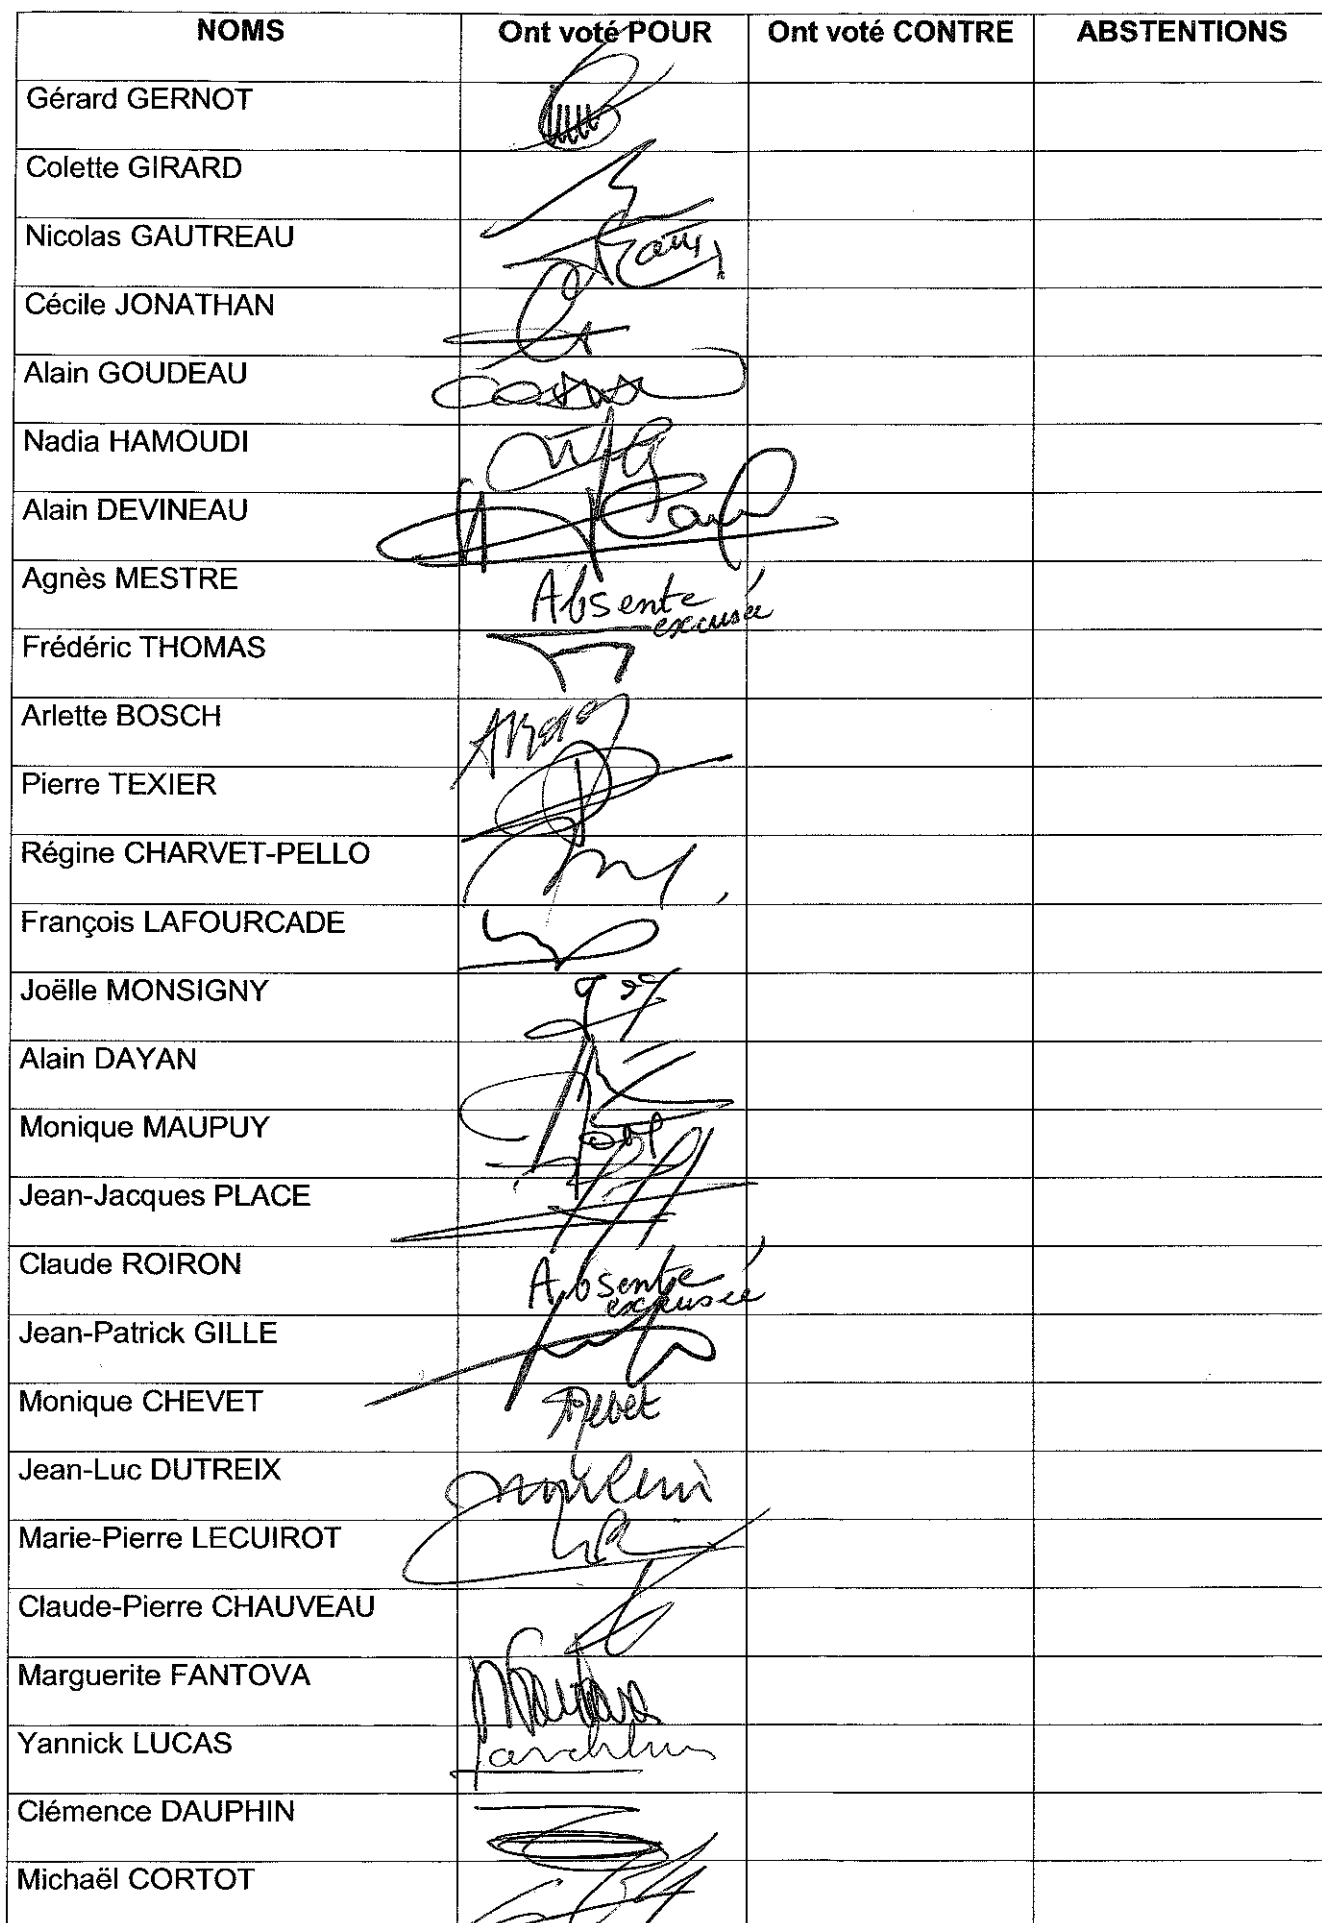 NOMS Ont voté POUR Ont voté CONTRE ABSTENTIONS
Gérard GERNOT
Colette GIRARD
Nicolas GAUTREAU
Cécile JONATHAN
Alain GOUDEAU
Nadia HAMOUDI
Alain DEVINEAU
Agnès MESTRE Absente
excusée
Frédéric THOMAS
Arlette BOSCH
Pierre TEXIER
Régine CHARVET-PELLO
François LAFOURCADE
Joëlle MONSIGNY
Alain DAYAN
Monique MAUPUY
Jean-Jacques PLACE
Claude ROIRON Absente
excusée
Jean-Patrick GILLE
Monique CHEVET
Jean-Luc DUTREIX
Marie-Pierre LECUIROT
Claude-Pierre CHAUVEAU
Marguerite FANTOVA
Yannick LUCAS
Clémence DAUPHIN
Michaël CORTOT